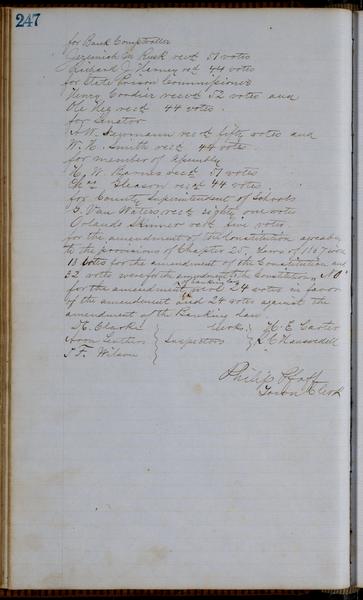 247
for Bank Comptroller
Jeremiah M Rusk recvd 51 votes
Richard J Harney rec 44 votes
for State Prison Commissioner
Henry Cordier recevd 52 votes and
 rect 44 votes.
for Senator
A. W. rect fifty votes and
W. H. Smith rect 44 votes.
for member of Assembly
H. W. Barnes rect 51 votes
Chas Gleason rect 44 votes.
for County Superintendent of Schools
G. Van Waters rect eighty one votes
Orlando Skinner rect five votes.
for the amendment of the Constitution agreeably
to the provisions of Chapter 215 Laws of
 votes for the amendment of the Constitution and
32 votes were for the amendment to the Constitution "NO"
for the amendment banking law were 24 votes in favor
of the amendment and 24 votes against the
amendment of the Banking Law.
H. Clarke
Clerks
H. E. Carter
Inspectors
T. F. Wilson
Philip Pfaff
Town Clerk